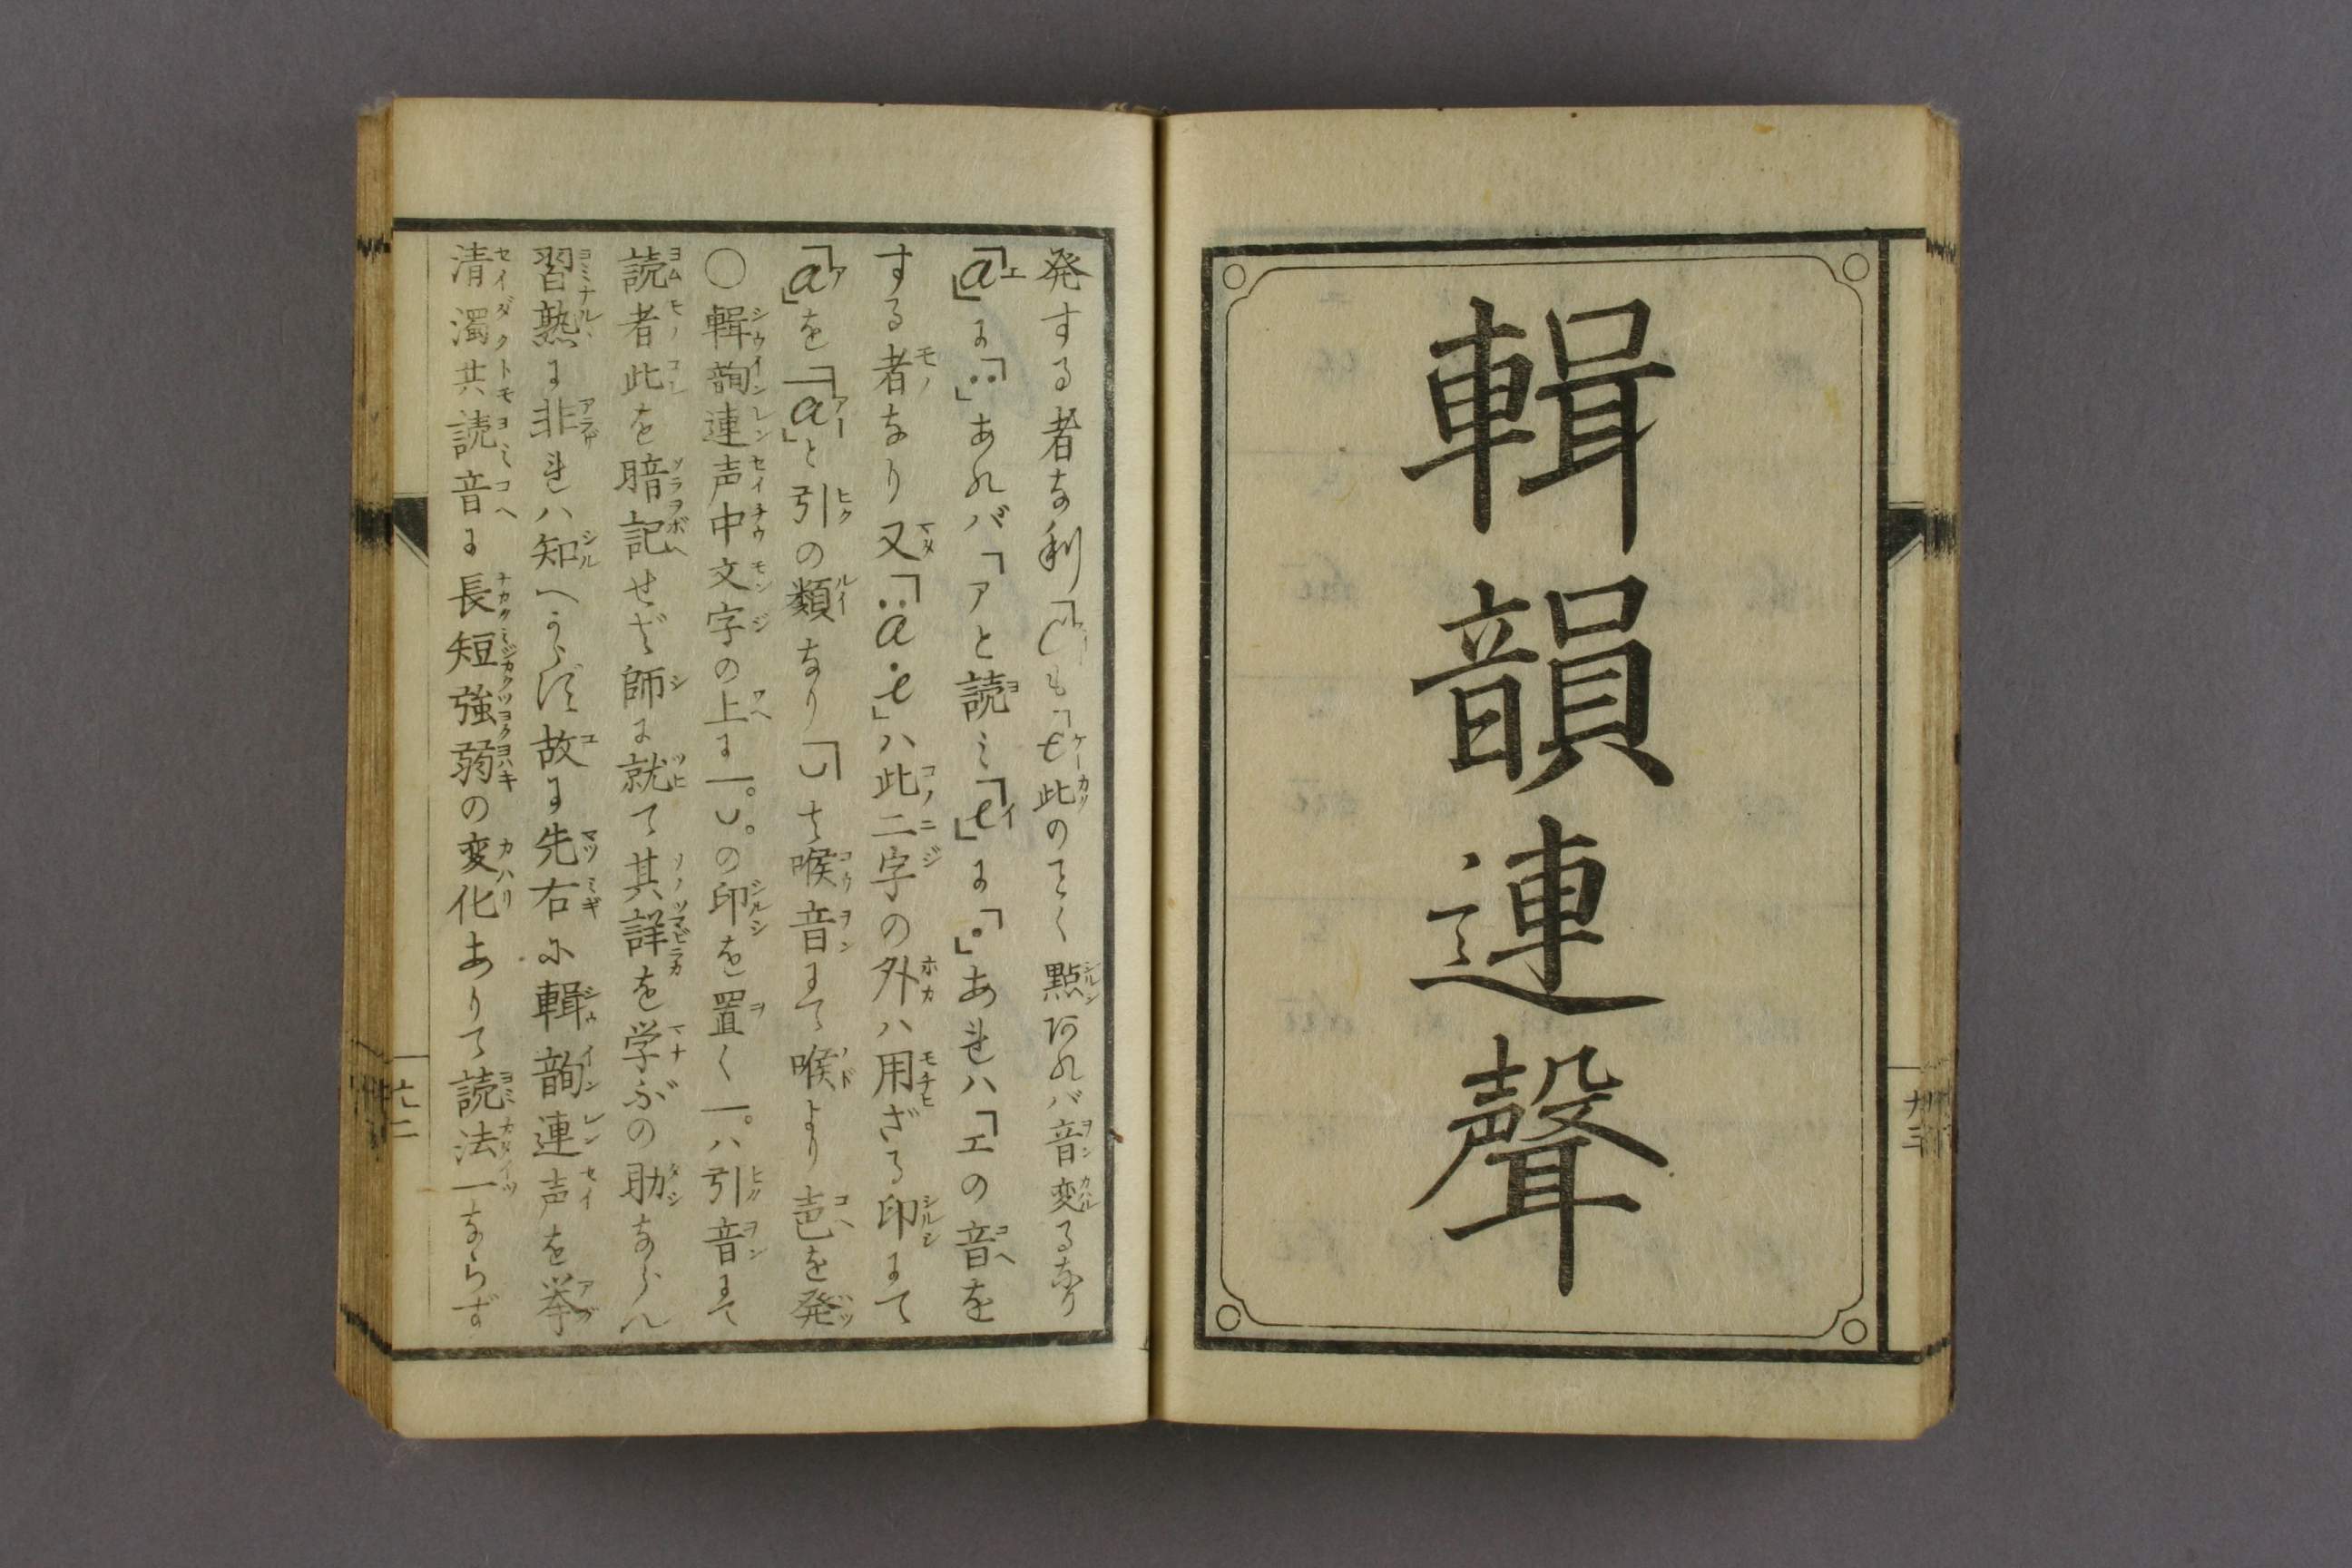 輯韻連聲
発する者な利「も「e此のてく點阿れバ音変るなり
「a」に「¨」あれバ「アと読ミ「e」に「・」あれハ「エの音を
する者なり又「¨a・e」ハ此二字の外ハ用ざる印にて
「a」を「a」と引の類なり「⌣」は喉音にて喉より声を発
〇輯韵連声中文字の上に一。⌣。の印を置く一。ハ引音にて
読者此を暗記せざ師に就て其詳を学ぶの助ならん
習熟に非れハ知べからず故に先右に輯韵連声を挙
清濁共読音に長短強弱の変化ありて読法一ならず